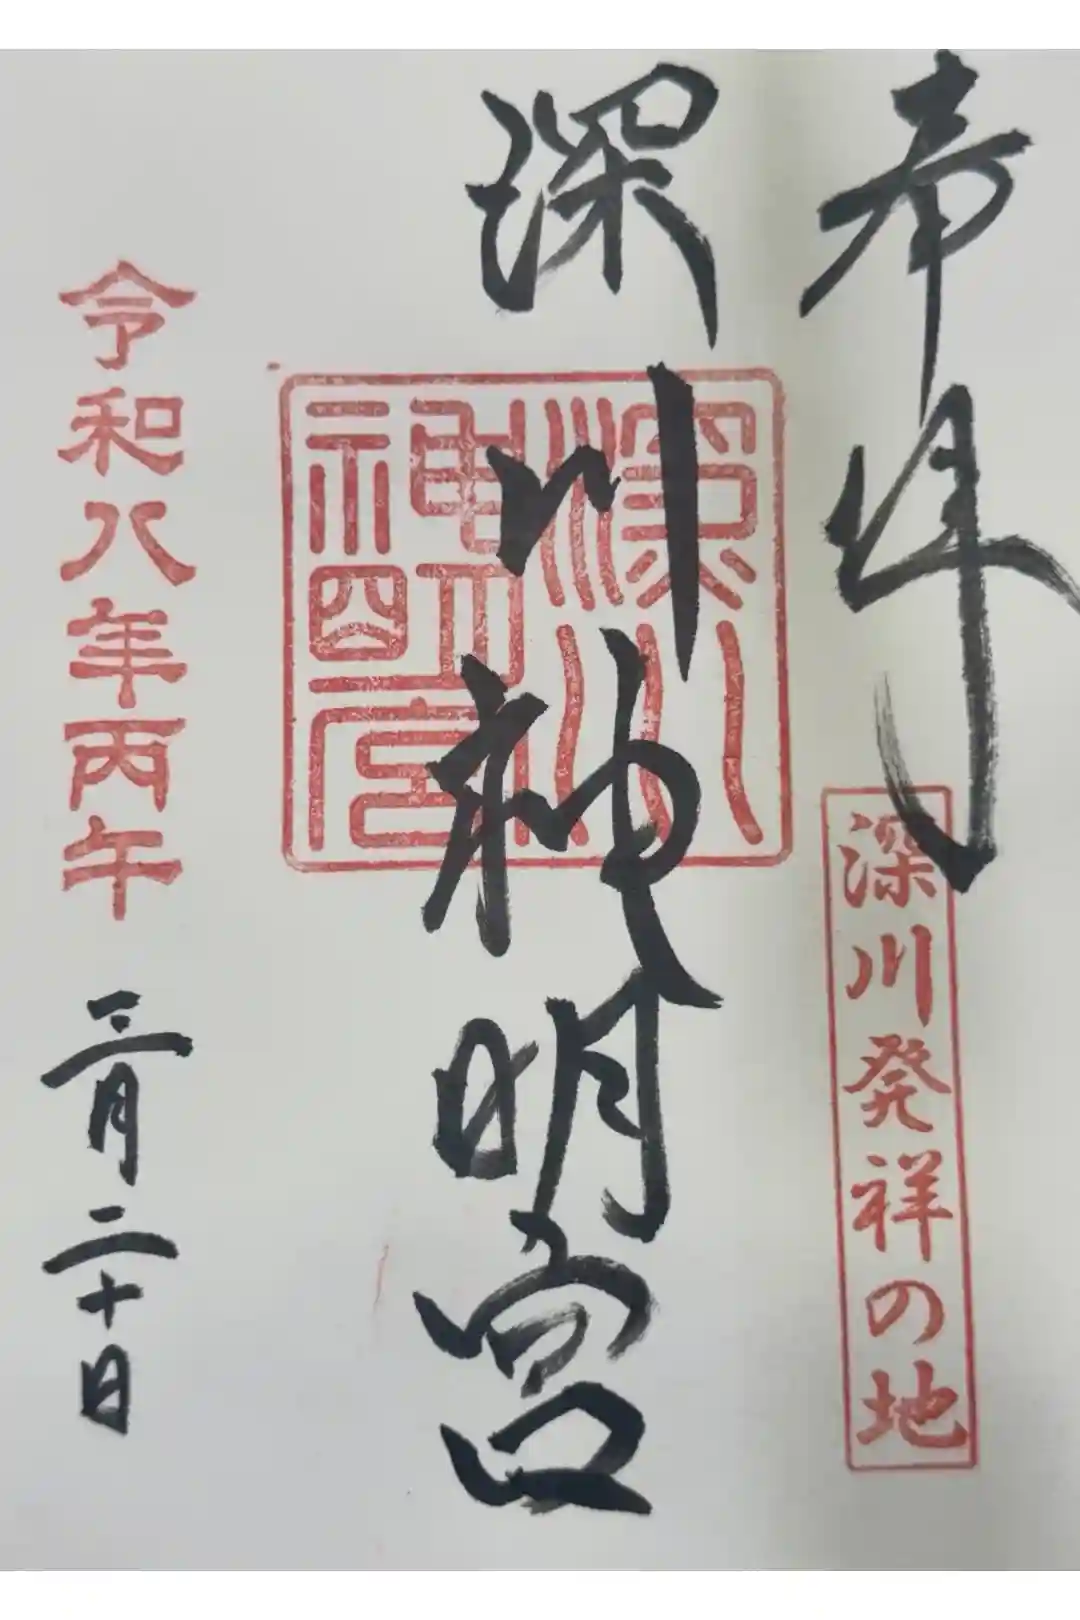 奉拝
深川発祥の地
深川神明宮
深川
神明宮
令和八年丙午
三月二十日